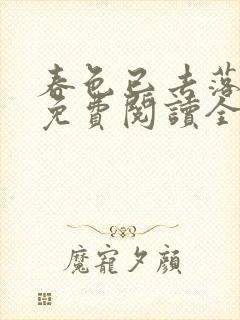 春色已去落
免費閱讀全
魔寵夕顏